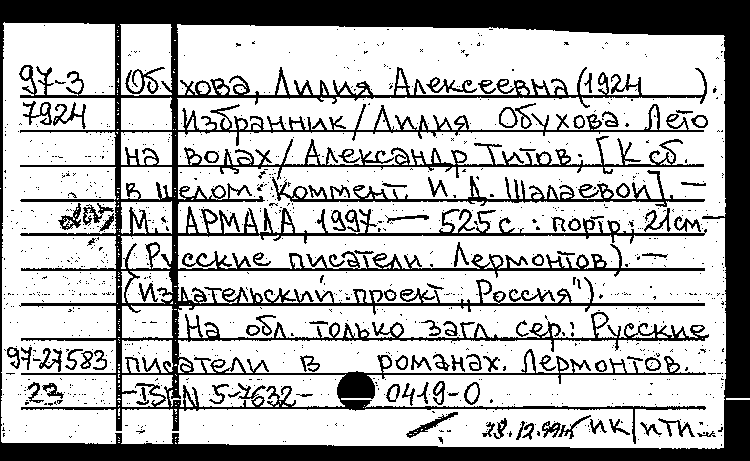 97-3 Обухова, Лидия Алексеевна (1924 ).
7924 Избранник / Лидия Обухова. Лето
на водах / Александр Титов; [К сб.
в целом: Коммент. И. Д. Шалаевой]. —
М.: АРМАДА, 1997. — 525 с. : портр.; 21 см. —
(Русские писатели. Лермонтов). —
(Издательский проект „Россия").
На обл. только загл. сер.: Русские
97-27583 писатели в романах. Лермонтов.
23 — ISBN 5-7632-0419-0.
ИК ИТИ